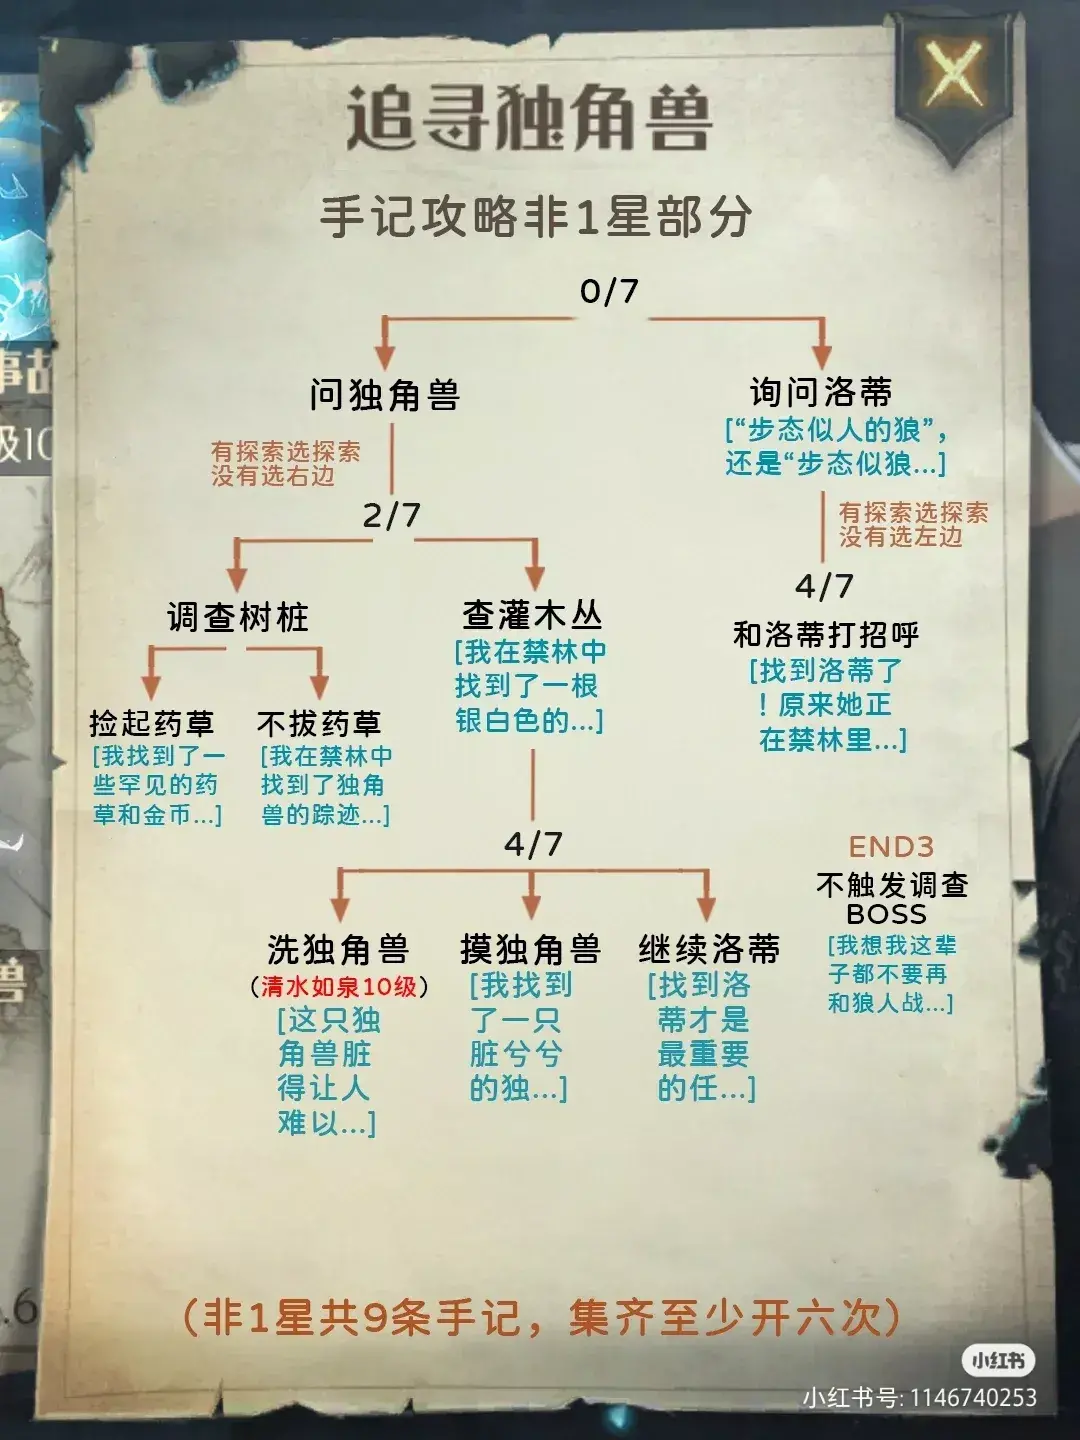 追寻独角兽
手记攻略非1星部分
0/7
问独角兽
询问洛蒂
[“步态似人的狼”,
还是“步态似狼...]
有探索选探索
没有选右边
有探索选探索
没有选左边
2/7
4/7
调查树桩
查灌木丛
[我在禁林中
找到了一根
银白色的...]
和洛蒂打招呼
[找到洛蒂了
！原来她正
在禁林里...]
捡起药草
[我找到了一
些罕见的药
草和金币...]
不拔药草
[我在禁林中
找到了独角
兽的踪迹...]
4/7
END3
不触发调查
BOSS
[我想我这辈
子都不要再
和狼人战...]
洗独角兽
（清水如泉10级）
[这只独
角兽脏
得让人
难以...]
摸独角兽
[我找到
了一只
脏兮兮
的独...]
继续洛蒂
[找到洛
蒂才是
最重要
的任...]
（非1星共9条手记，集齐至少开六次）
事故
级10
兽
.6
小红书
小红书号: 1146740253